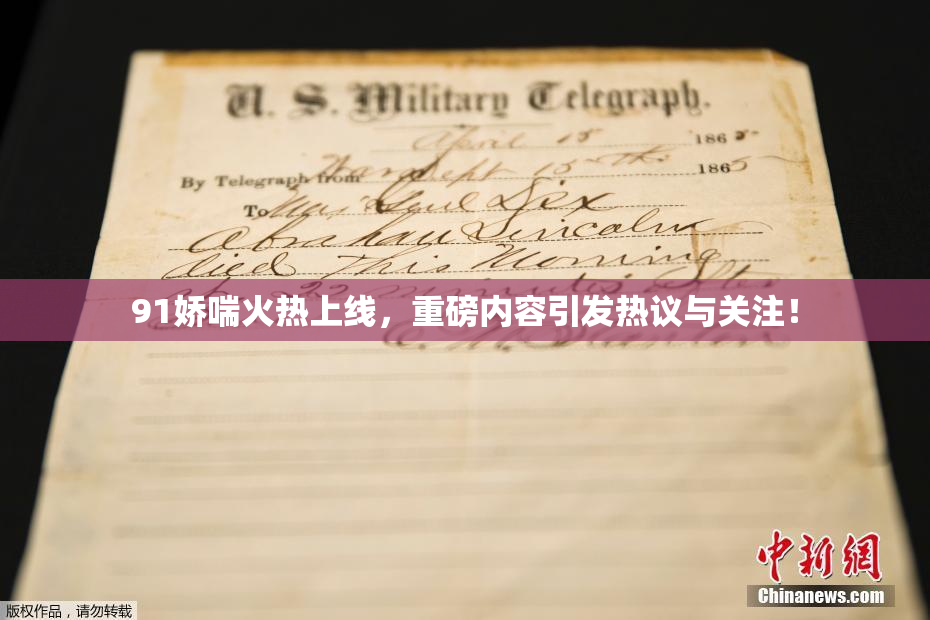 U. S. Military Telegraph.
April 15 1865
By Telegraph from War Dept 15th 1865
To Maj Genl Dix
Abraham Lincoln
died This Morning
at 22 minutes after
91娇喘火热上线，重磅内容引发热议与关注！
E. M. Stanton
中新网
Chinanews.com
版权作品，请勿转载